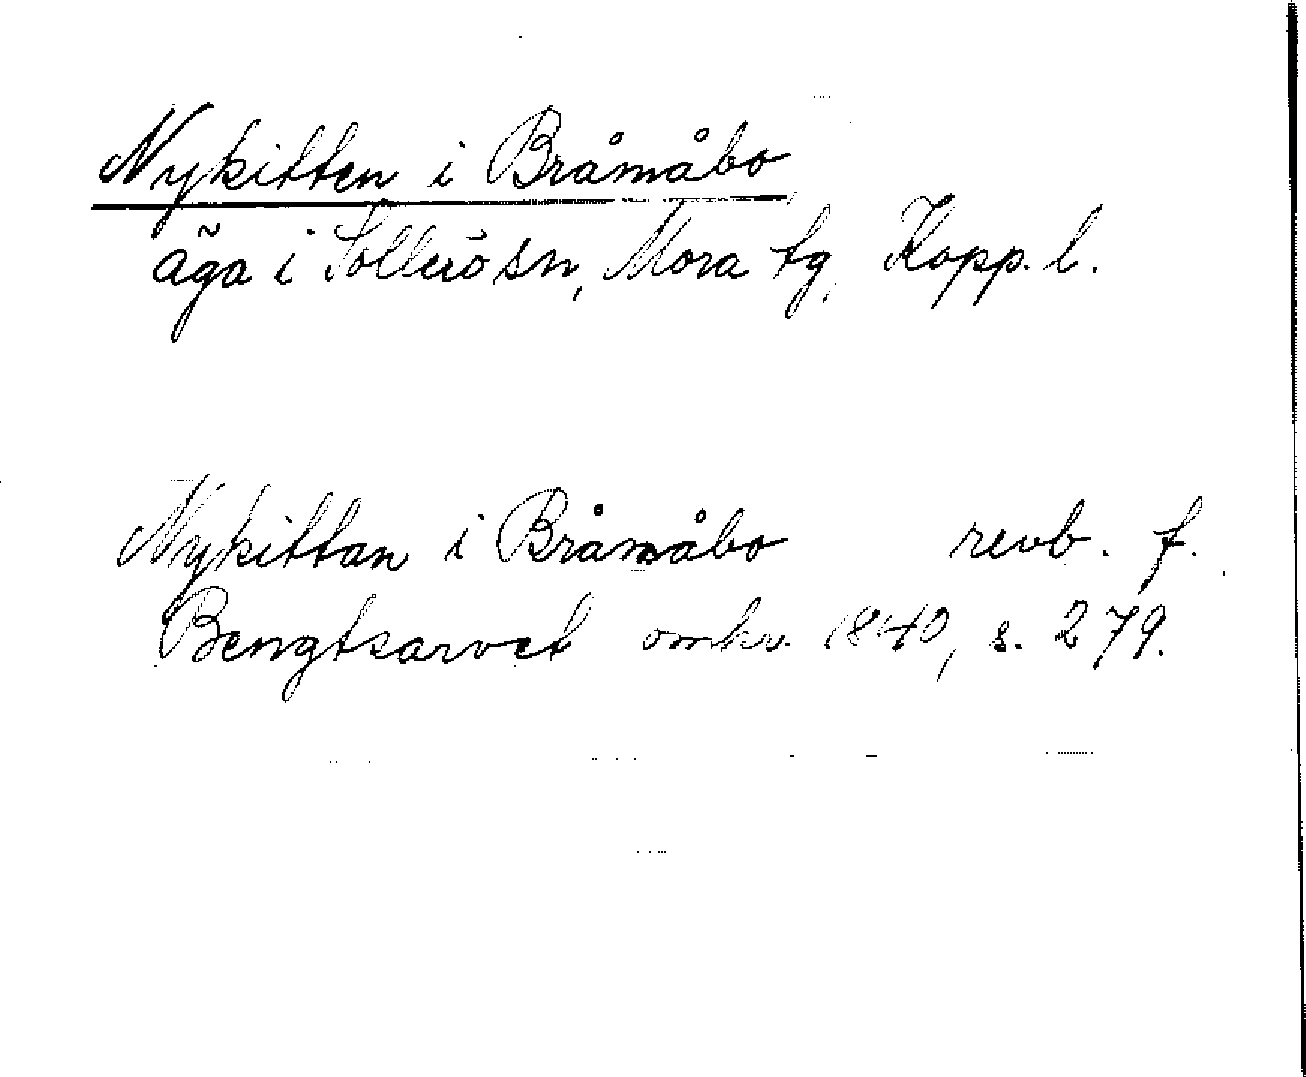 Nykitten i Bråmåbo
äga i Sollerö sn, Mora tg, Kopp. l.
Nykittan i Bråmåbo revb. f.
Bengtsarvet omkr. 1840, s. 279.